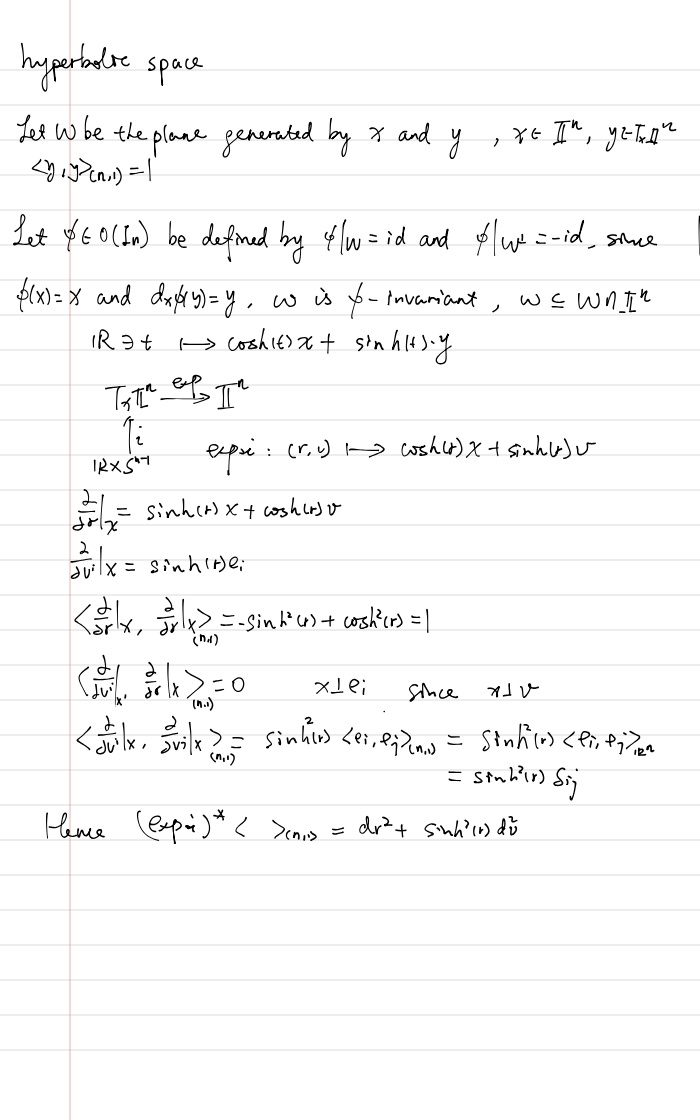 hyperbolic space
Let W be the plane generated by x and y , x ∈ 𝕀ⁿ, y ∈ Tₓ𝕀ⁿ
<y,y>₍ₙ,₁₎ = 1
Let ϕ ∈ O(In) be defined by ϕ|W = id and ϕ|W⊥ = -id, since
ϕ(x) = x and dₓϕ(y) = y, w is ϕ-invariant, w ⊆ W∩𝕀ⁿ
ℝ ∋ t ↦ cosh(t)x + sinh(t)·y
Tₓ𝕀ⁿ exp → 𝕀ⁿ
↑i
ℝ×Sⁿ⁻¹ exp∘i : (r,v) ↦ cosh(r)x + sinh(r)v
∂/∂r|x = sinh(r)x + cosh(r)v
∂/∂vⁱ|x = sinh(r)eᵢ
<∂/∂r|x, ∂/∂r|x>₍ₙ,₁₎ = -sinh²(r) + cosh²(r) = 1
<∂/∂vⁱ|x, ∂/∂r|x>₍ₙ,₁₎ = 0 x⊥eᵢ since x⊥v
<∂/∂vⁱ|x, ∂/∂vʲ|x>₍ₙ,₁₎ = sinh²(r)<eᵢ,eⱼ>₍ₙ,₁₎ = sinh²(r)<eᵢ,eⱼ>ℝⁿ
= sinh²(r) δᵢⱼ
Hence (exp∘i)* < >₍ₙ,₁₎ = dr² + sinh²(r) dv²